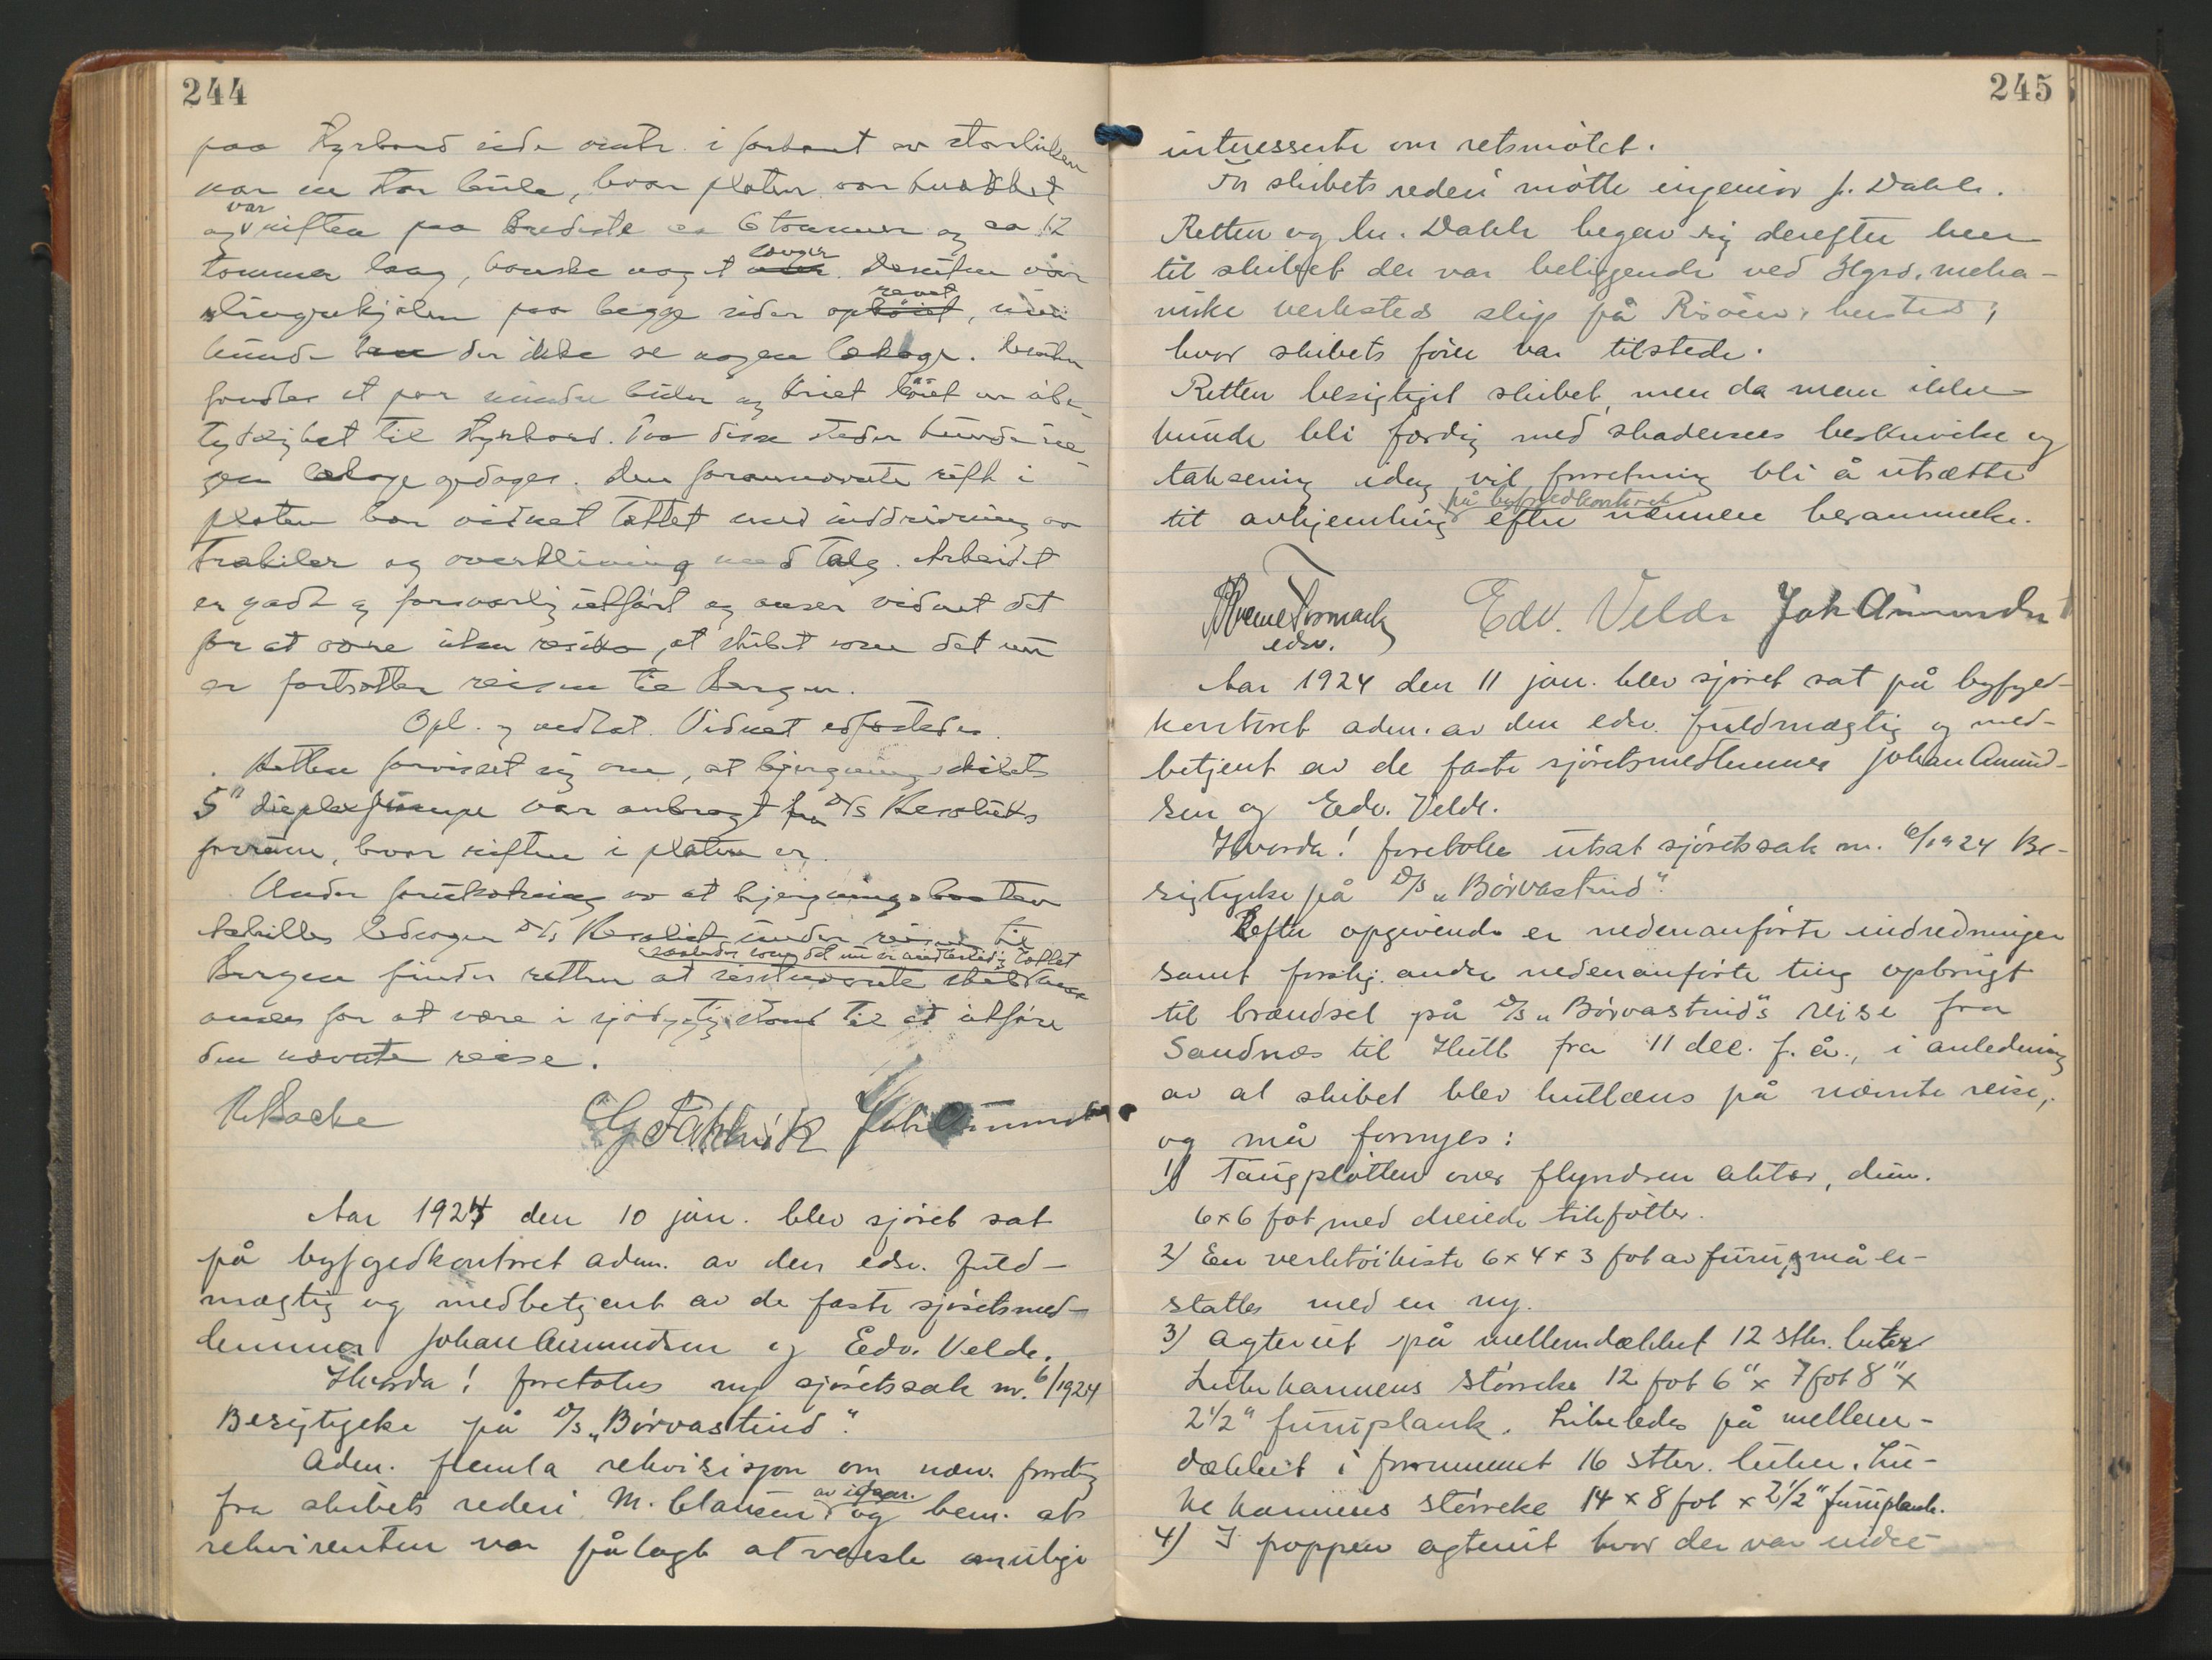 244
paa Styrbord side omtr. i forkant av storluken
var en stor bule, hvor platen var knækket
og var riften paa Bredeste ca 6 tommer og ca 12
tommer lang, kanske noget længer. Desuten var
slingrekjølen paa begge sider oprevet, men
kunde der ikke se nogen lækage. Desuten
fandtes et par mindre buler og
tydelighet til Styrbord. Paa disse steder kunde in-
gen lækage opdages. Den forannævnte rift i
platen har vidnet tættet med inddrivning av
trækiler og overklining med talg. Arbeidet
er godt og forsvarlig utført og anser vidnet det
for at være uten risiko, at skibet som det nu
er fortsætter reisen til Bergen.
Opl. og vedtat. Vidnet edfæstedes.
Retten forvisset sig om, at bjergningsskibets
5" dieplexpumpe var anbragt fra D/S Resoluts
forrum, hvor riften i platen er.
Under forutsætning av at bjergningsbaaten
Achilles ledsager D/S Resolut under reisen til
saaledes som det nu er midlertidig tættet
Bergen finder retten at sistnævnte skib kan
anses for at være i sjødygtig stand til at utføre
den nævnte reise.
R. Backe C G Fahlnik Joh Amundsen
Aar 1924 den 10 jan. blev sjøret sat
på byfogedkontoret adm. av den edsv. fuld-
mægtig og medbetjent av de faste sjøretsmed-
lemmer Johan Amundsen og Edv. Velde.
Hvorda! foretokes ny sjøretssak nr. 6/1924
Besigtigelse på D/S "Børvastind".
Adm. fremla rekvisisjon om næv. forretning
fra skibets rederi M. Clausen av igaar og bem. at
rekvirenten var pålagt at varsle mulige
245
interesserte om retsmøtet.
For skibets rederi møtte ingeniør J. Dahle.
Retten og hr. Dahle begav sig derefter hen
til skibet der var beliggende ved Hgsd. meka-
niske verksteds slip på Risøen, hersteds,
hvor skibets fører var tilstede.
Retten besigtiget skibet, men da man ikke
kunde bli færdig med skadernes beskrivelse og
taksering idag vil forretning bli å utsætte
til avhjemling på byfogedkontoret efter nærmere berammelse.
edsv. Edv. Velde Joh Amundsen
Aar 1924 den 11 jan. blev sjøret sat på byfoged-
kontoret adm. av den edsv. fuldmægtig og med-
betjent av de faste sjøretsmedlemmer Johan Amund-
sen og Edv. Velde.
Hvorda! foretokes utsat sjøretssak nr. 6/1924 Be-
sigtigelse på D/S "Børvastind".
Efter opgivende er nedenanførte indredninger
samt forskj. andre nedenanførte ting opbrugt
til brændsel på D/S "Børvastind"s reise fra
Sandnæs til Hull fra 11 dec. f. å., i anledning
av at skibet blev kullæns på nævnte reise,
og må fornyes:
1) Taugplatten over flyndren akter, dim.
6x6 fot, med dreiede tilefötter.
2) En verktøikiste 6 x 4 x 3 fot av furu, og må er-
stattes med en ny.
3) Agterut på mellemdækket 12 stkr. luker
Lukekarmens størrelse 12 fot 6" x 7 fot 8" x
2 1/2" furuplank. Likeledes på mellem-
dækket i forrummet 16 stkr. luker. Lu-
kekarmens størrelse 14 x 8 fot x 2 1/2" furuplank.
4) I poppen agterut hvor der var indre-